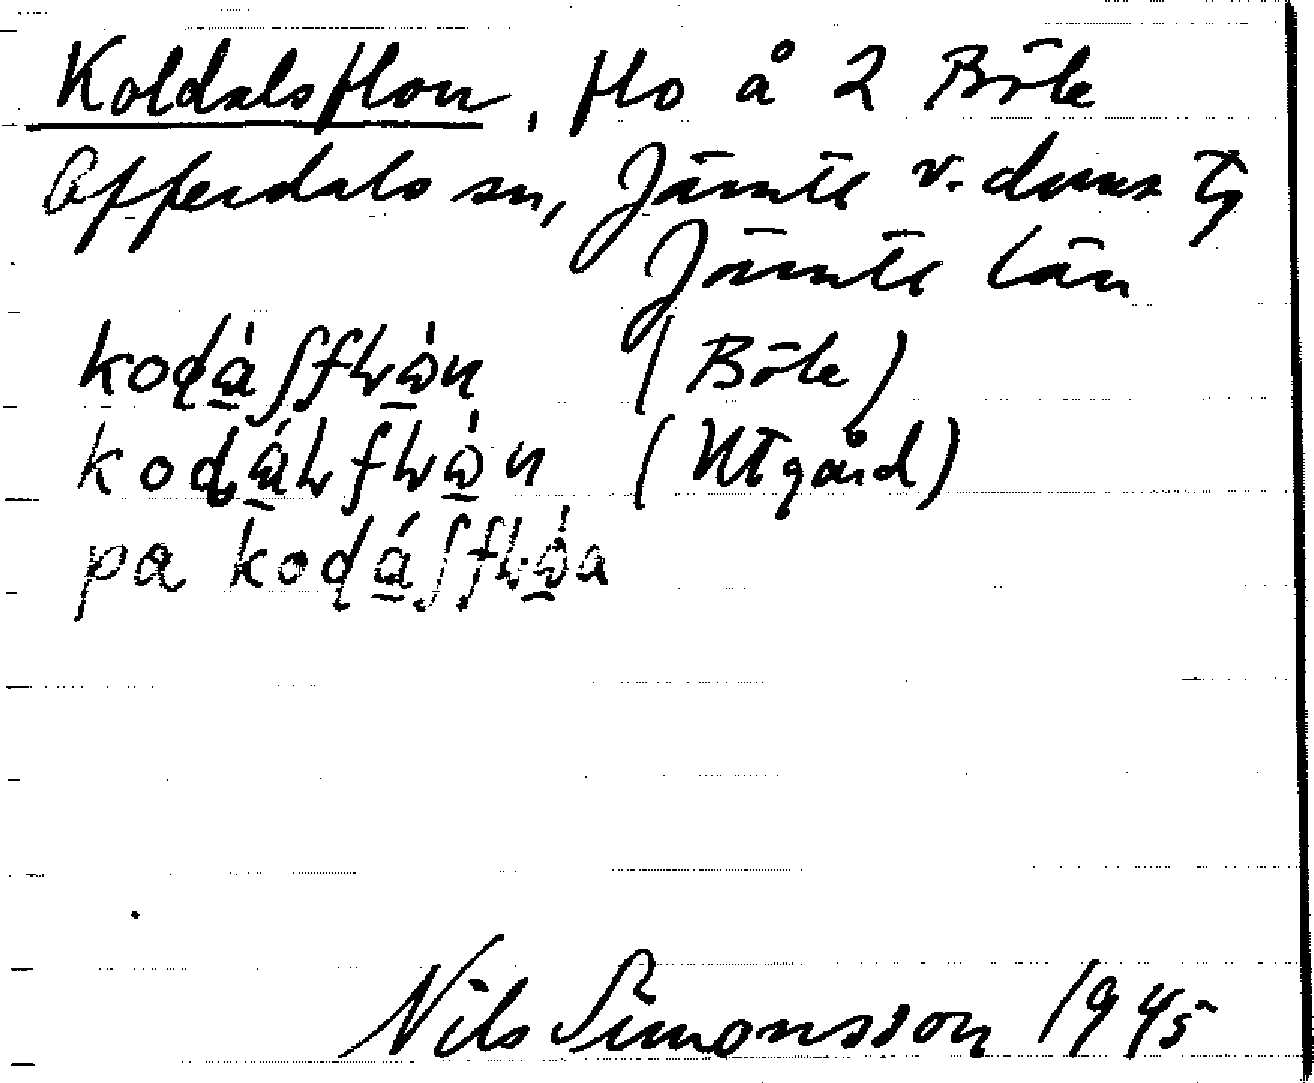 Koldalsflon, flo å 2 Böle
Offerdals sn, Jämtl v. doms Tg
Jämtl län
kodáʃflɷ̀n (Böle)
kodálflɷ̀n (Utgård)
pa kodáʃflɷ̀a
Nils Simonsson 1945